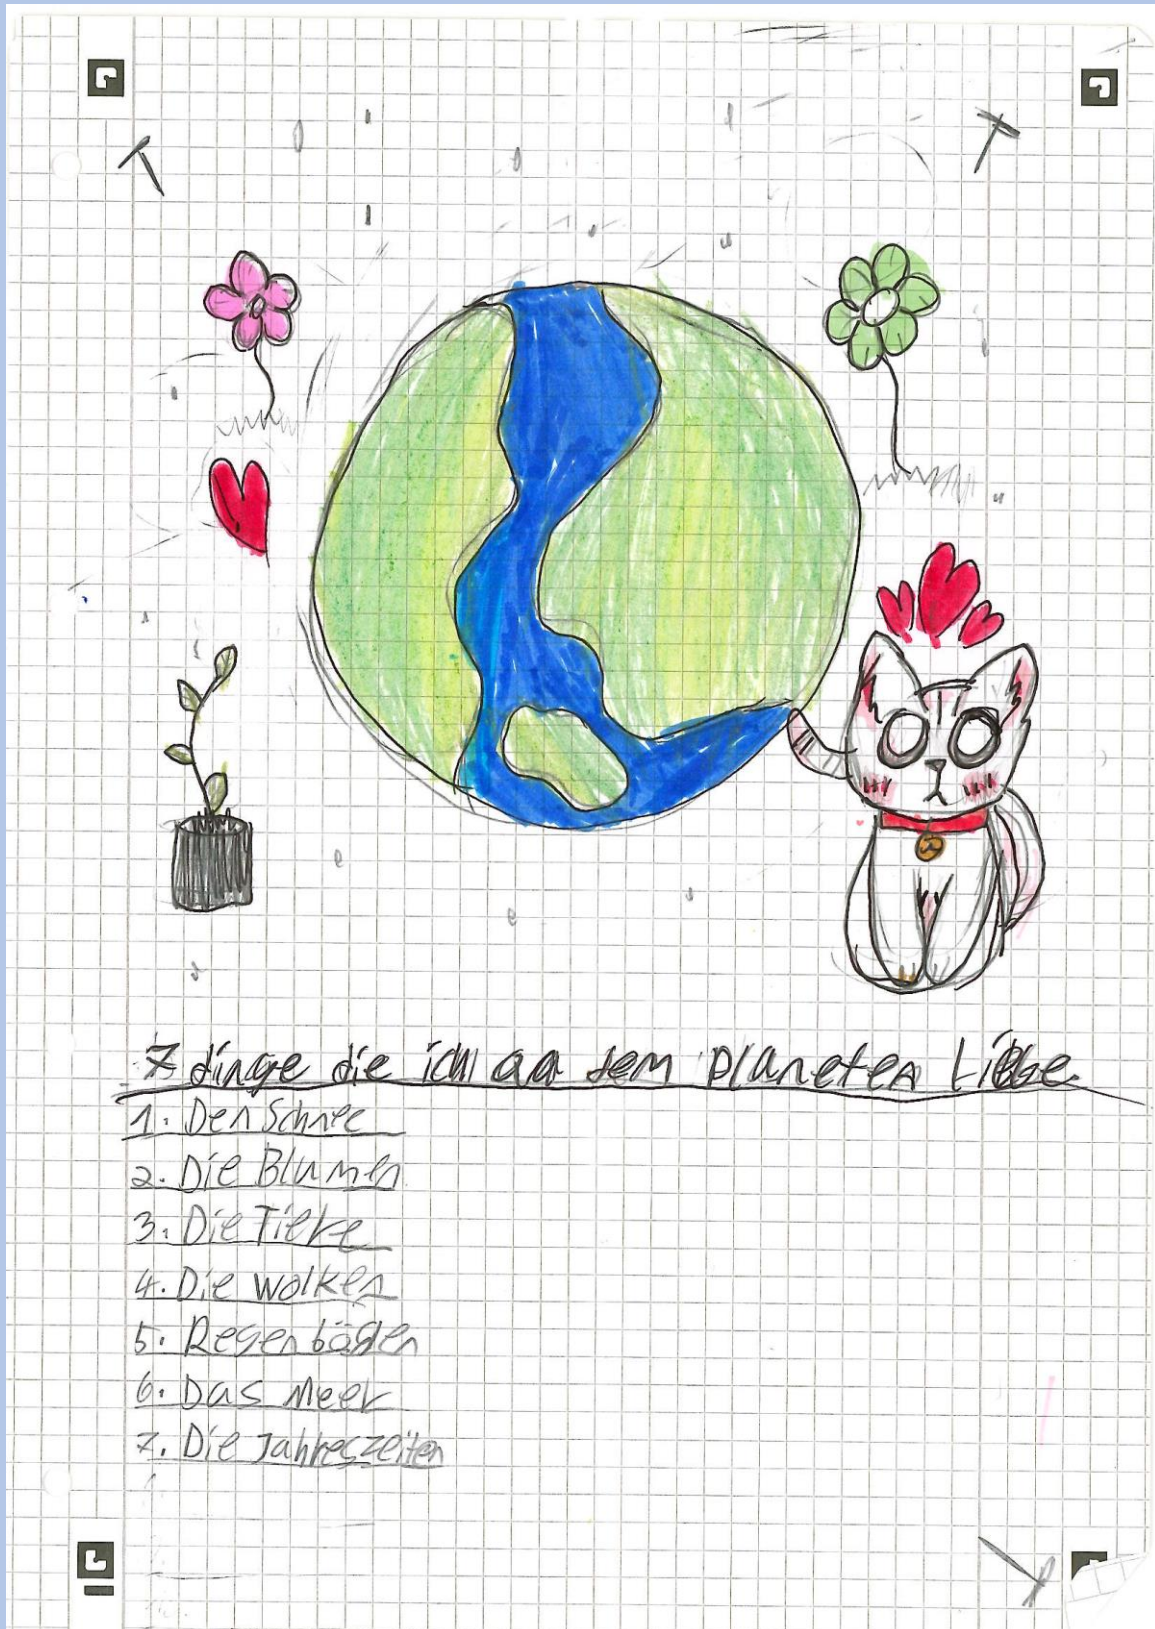 7 dinge die ich an dem Planeten Liebe.
1. Den Schnee
2. Die Blumen
3. Die Tiere
4. Die Wolken
5. Regenbögen
6. Das Meer
7. Die Jahreszeiten